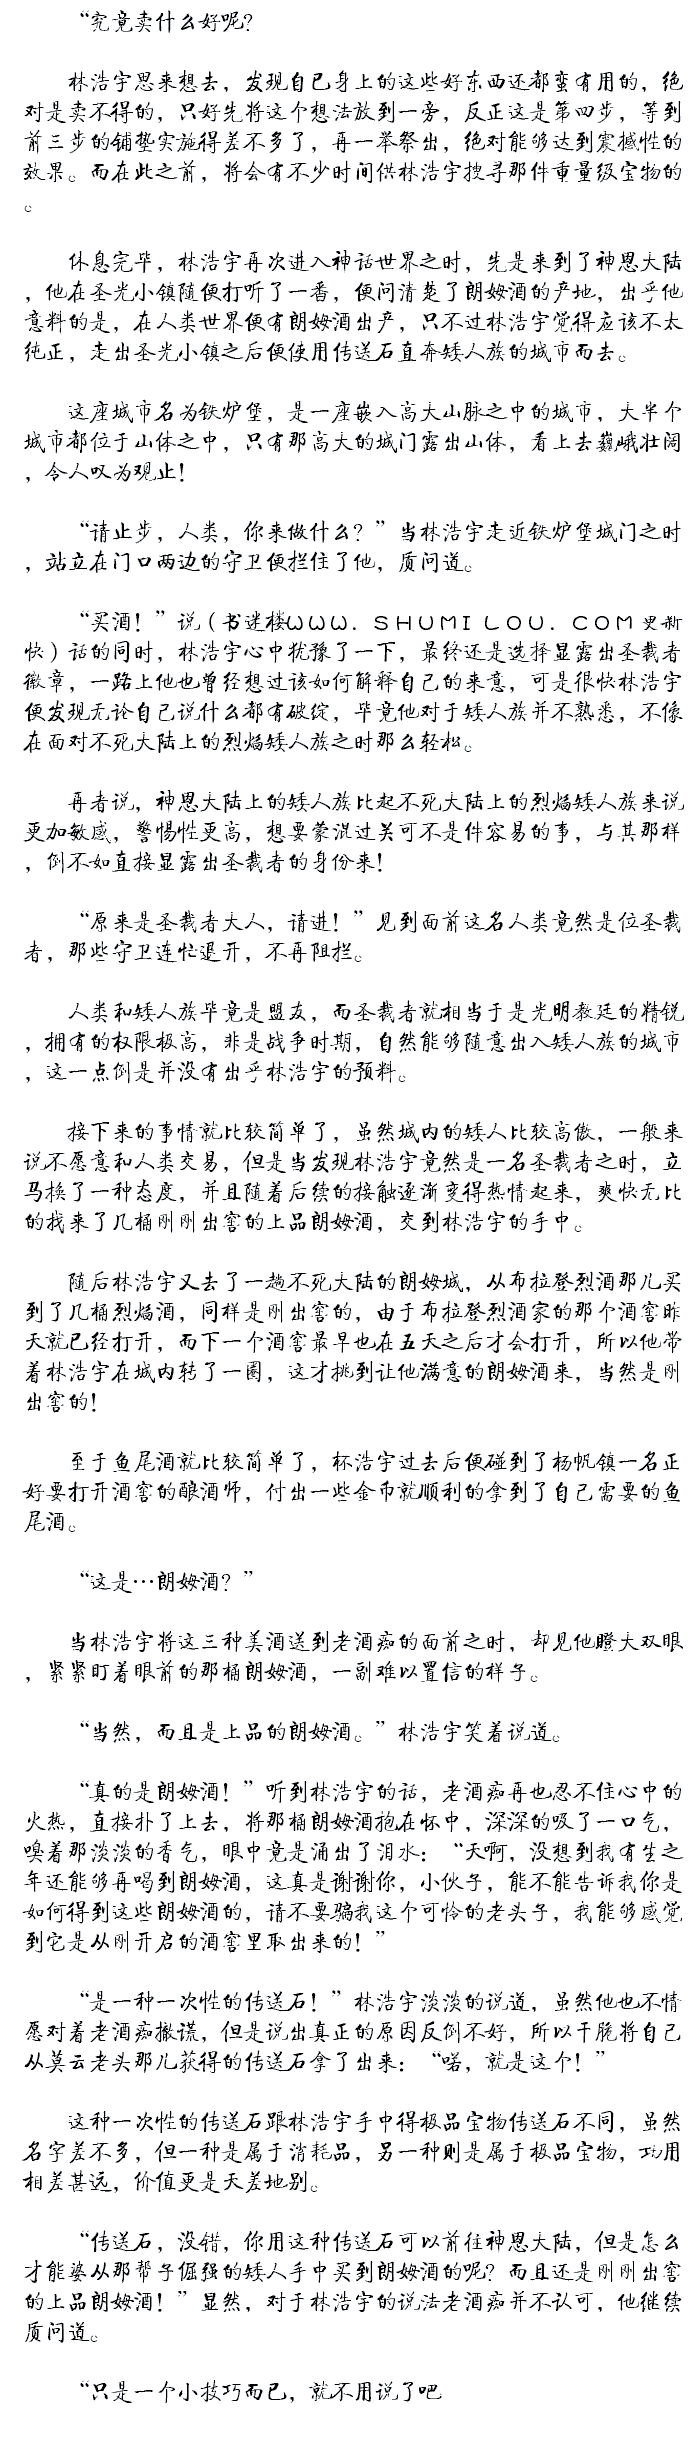 “究竟卖什么好呢？
林浩宇思来想去，发现自己身上的这些好东西还都蛮有用的，绝
对是卖不得的，只好先将这个想法放到一旁，反正这是第四步，等到
前三步的铺垫实施得差不多了，再一举祭出，绝对能够达到震撼性的
效果。而在此之前，将会有不少时间供林浩宇搜寻那件重量级宝物的
。
休息完毕，林浩宇再次进入神话世界之时，先是来到了神恩大陆
，他在圣光小镇随便打听了一番，便问清楚了朗姆酒的产地，出乎他
意料的是，在人类世界便有朗姆酒出产，只不过林浩宇觉得应该不太
纯正，走出圣光小镇之后便使用传送石直奔矮人族的城市而去。
这座城市名为铁炉堡，是一座嵌入高大山脉之中的城市，大半个
城市都位于山体之中，只有那高大的城门露出山体，看上去巍峨壮阔
，令人叹为观止！
“请止步，人类，你来做什么？”当林浩宇走近铁炉堡城门之时
，站立在门口两边的守卫便拦住了他，质问道。
“买酒！”说（书迷楼WWW．SHUMILOU．COM更新
快）话的同时，林浩宇心中犹豫了一下，最终还是选择显露出圣裁者
徽章，一路上他也曾经想过该如何解释自己的来意，可是很快林浩宇
便发现无论自己说什么都有破绽，毕竟他对于矮人族并不熟悉，不像
在面对不死大陆上的烈焰矮人族之时那么轻松。
再者说，神恩大陆上的矮人族比起不死大陆上的烈焰矮人族来说
更加敏感，警惕性更高，想要蒙混过关可不是件容易的事，与其那样
，倒不如直接显露出圣裁者的身份来！
“原来是圣裁者大人，请进！”见到面前这名人类竟然是位圣裁
者，那些守卫连忙退开，不再阻拦。
人类和矮人族毕竟是盟友，而圣裁者就相当于是光明教廷的精锐
，拥有的权限极高，非是战争时期，自然能够随意出入矮人族的城市
，这一点倒是并没有出乎林浩宇的预料。
接下来的事情就比较简单了，虽然城内的矮人比较高傲，一般来
说不愿意和人类交易，但是当发现林浩宇竟然是一名圣裁者之时，立
马换了一种态度，并且随着后续的接触逐渐变得热情起来，爽快无比
的找来了几桶刚刚出窖的上品朗姆酒，交到林浩宇的手中。
随后林浩宇又去了一趟不死大陆的朗姆城，从布拉登烈酒那儿买
到了几桶烈焰酒，同样是刚出窖的，由于布拉登烈酒家的那个酒窖昨
天就已经打开，而下一个酒窖最早也在五天之后才会打开，所以他带
着林浩宇在城内转了一圈，这才挑到让他满意的朗姆酒来，当然是刚
出窖的！
至于鱼尾酒就比较简单了，杯浩宇过去后便碰到了杨帆镇一名正
好要打开酒窖的酿酒师，付出一些金币就顺利的拿到了自己需要的鱼
尾酒。
“这是…朗姆酒？”
当林浩宇将这三种美酒送到老酒痴的面前之时，却见他瞪大双眼
，紧紧盯着眼前的那桶朗姆酒，一副难以置信的样子。
“当然，而且是上品的朗姆酒。”林浩宇笑着说道。
“真的是朗姆酒！”听到林浩宇的话，老酒痴再也忍不住心中的
火热，直接扑了上去，将那桶朗姆酒抱在怀中，深深的吸了一口气，
嗅着那淡淡的香气，眼中竟是涌出了泪水：“天啊，没想到我有生之
年还能够再喝到朗姆酒，这真是谢谢你，小伙子，能不能告诉我你是
如何得到这些朗姆酒的，请不要骗我这个可怜的老头子，我能够感觉
到它是从刚开启的酒窖里取出来的！”
“是一种一次性的传送石！”林浩宇淡淡的说道，虽然他也不情
愿对着老酒痴撒谎，但是说出真正的原因反倒不好，所以干脆将自己
从莫云老头那儿获得的传送石拿了出来：“喏，就是这个！”
这种一次性的传送石跟林浩宇手中得极品宝物传送石不同，虽然
名字差不多，但一种是属于消耗品，另一种则是属于极品宝物，功用
相差甚远，价值更是天差地别。
“传送石，没错，你用这种传送石可以前往神恩大陆，但是怎么
才能婆从那帮子倔强的矮人手中买到朗姆酒的呢？而且还是刚刚出窖
的上品朗姆酒！”显然，对于林浩宇的说法老酒痴并不认可，他继续
质问道。
“只是一个小技巧而已，就不用说了吧